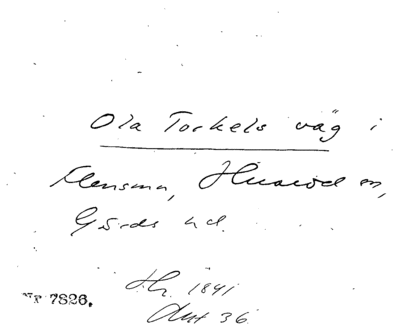 Ola Torkels väg i
Elensma, Huaröd sn,
Gärds hd.
Hr. 1841
Akt 36
Nr 7826.